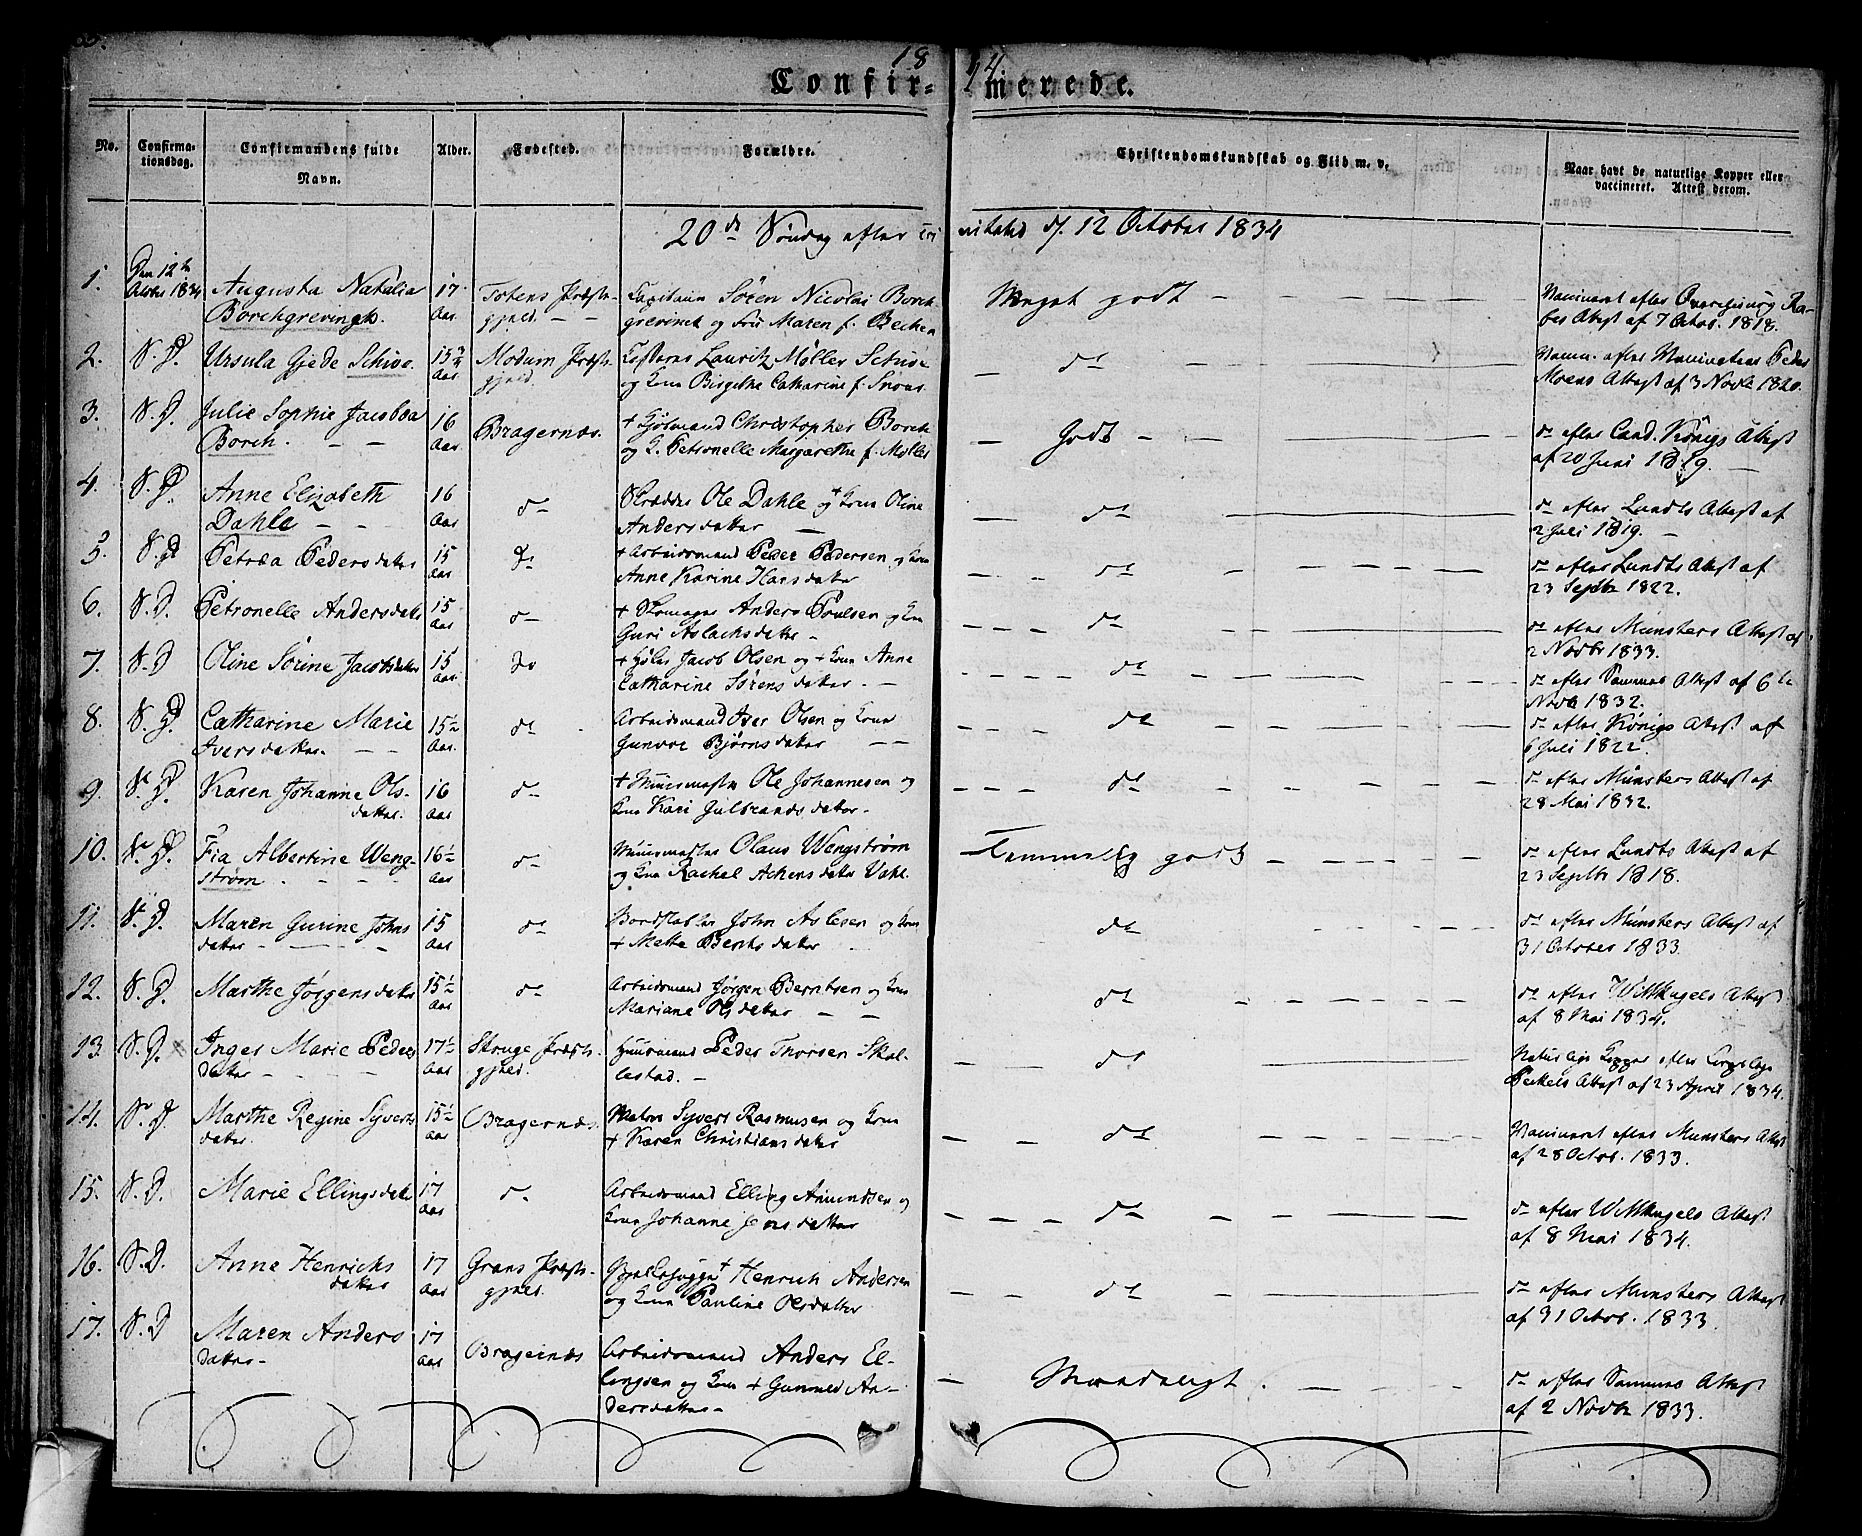 18 34
Confir- merede.
No. Confirma- Confirmandens fulde Alder. Fødested. Forældre. Christendomskundskab og Flid m. v. Naar havt de naturlige Kopper eller
tionsdag. Navn. vaccineret. Attest derom.
20de Søndag efter Tri nitatis d. 12 October 1834
1. Den 12te Octbr 1834 Augusta Natalia 17 Totens Præste- Capitain Søren Nicolai Borch- Meget godt Vaccineret efter
Borchgrevingk. Aar gjeld. grevinck og Fru Maren f. Becken Attest af 7 Octbr. 1818.
2. S. D. Ursula Gjede Schive. 15 3/4 Modum Præste- Lauritz Møller Schive do Vacc. efter Peder
Aar gjeld. og Kone Birgitte Catharine f. Moens Attest af 3 Novbr 1820.
3. S. D. Julie Sophie Jacobea 16 Bragernæs. + Kjøbmand Christopher Borch Godt do efter Cand. Königs Attest
Borch. Aar og K. Petronelle Margarethe f. Møller af 20 Juni 1819.
4. S. D. Anne Elizabeth 16 do Skrædder Ole Dahle og + Kone Oline do do efter Lundts Attest af
Dahle Aar Andersdatter 2 Juli 1819.
5. S. D. Petrea Pedersdatter 15 do + Arbeidsmand Peder Pedersen og Kone do do efter Lundts Attest af
Aar Anne Karine Hansdatter 23 Septbr 1822.
6. S. D. Petronelle Andersdatter 15 do + Skomager Anders Poulsen og Kone do do efter Münsters Attest af
Aar Guri Aslachsdatter 2 Novbr 1833.
7. S. D Oline Sørine Jacobsdatter 15 do + Jacob Olsen og + Kone Anne do do efter Attest af 6te
Aar. Catharine Sørensdatter. Novbr 1832.
8. S. D. Catharine Marie 15 1/2 do Arbeidsmand Iver Olsen og Kone do do efter Königs Attest af
Iversdatter. Aar. Gunvor Bjørnsdatter 6 Juli 1822.
9. S. D. Karen Johanne Ols- 16 do + Muurmester Ole Johannesen og do do efter Münsters Attest af
datter. Aar Kone Kari Gulbrandsdatter 28 Mai 1832.
10. S. D. Fia Albertine Weng- 16 1/2 do Muurmester Olaus Wengstrøm Temmelig godt do efter Lundts Attest af
strøm. Aar og Kone Rachel 23 Septbr 1818.
11. S. D. Maren Gurine Johns 15 do Bordstabler John Aslesen og Kone do do efter Münsters Attest af
datter Aar + Mette Berntsdatter 31 October 1833.
12. S. D. Marthe Jørgensdatter 15 1/2 do Arbeidsmand Jørgen Berntsen og Kone do do efter Wittkugels Attest
Aar Mariane Olsdatter af 8 Mai 1834.
13. S. D. Inger Marie Peders 17 1/2 Præste- Huusmand Peder Thorsen Skal- do Naturlige Kopper efter
datter Aar gjeld. lestad. Attest af 23 April 1834.
14. S. D. Marthe Regine Syverts 15 1/2 Bragernæs. Matros Syvert Rasmusen og Kone do Vaccineret efter Munsters Attest
datter. Aar + Karen Christiansdatter af 28 Octbr. 1833.
15. S. D. Marie Ellingsdatter 17 do Arbeidsmand Elling Amundsen og do do efter Wittkugels Attest
Aar Kone Johanne datter af 8 Mai 1834.
16. S. D. Anne Henrichs 17 Grans Præste- + Henrich Andersen do do efter Munsters Attest
datter Aar gjeld. og Kone Pauline Olsdatter af 31 Octbr. 1833.
17. S. D Maren Anders 17 Bragernæs Arbeidsmand Anders El- Maadeligt. do efter Attest
datter Aar lingsen og Kone + Gunnild An- af 2 Novbr 1833.
dersdatter